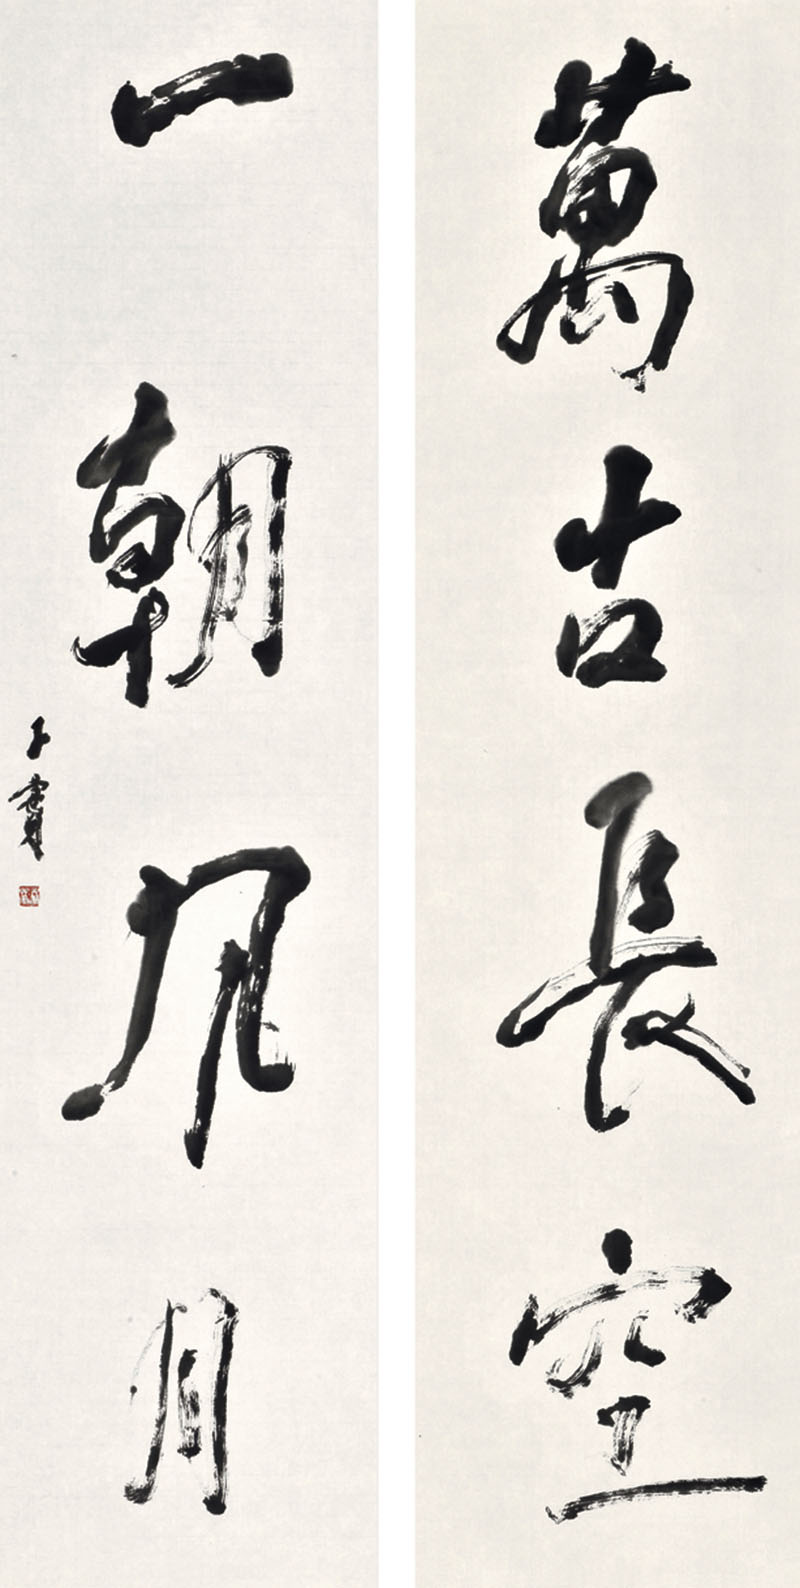 萬古長空
一朝风月